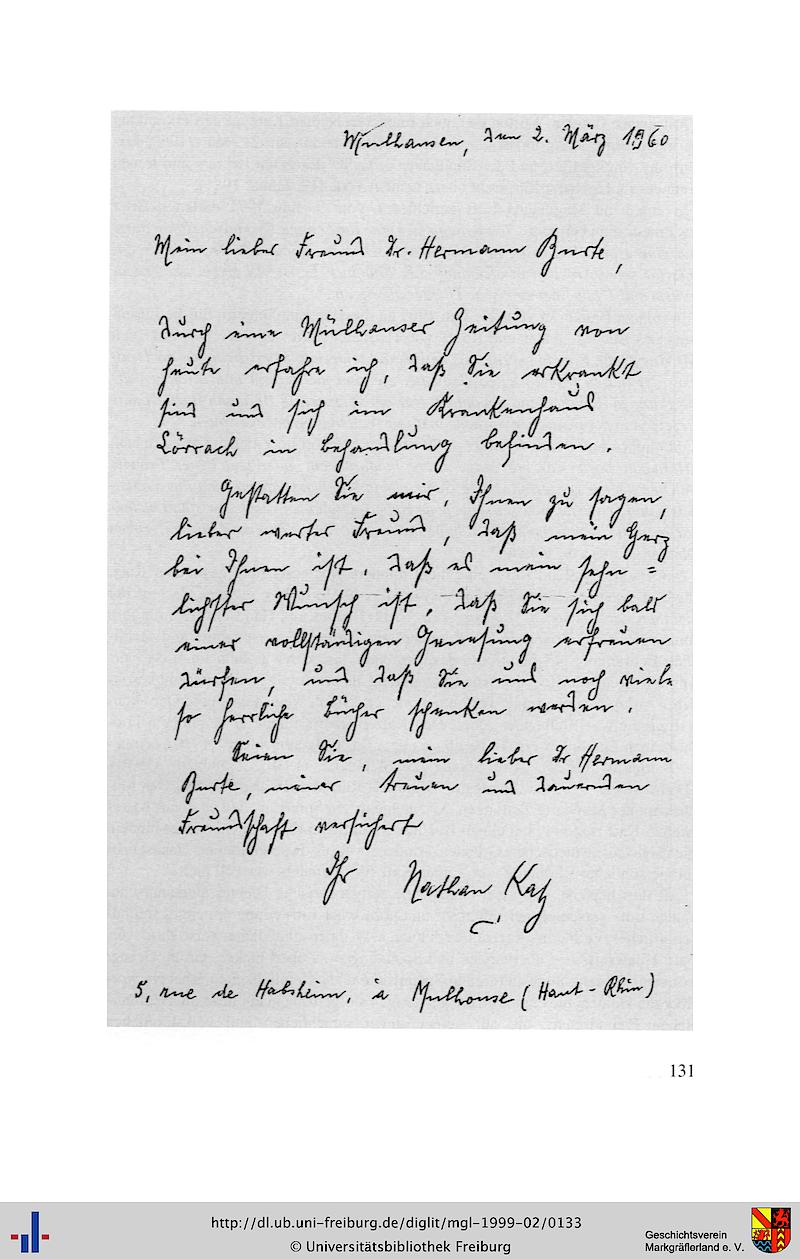 Mülhausen, den 2. März 1960
Mein lieber Freund Dr. Hermann Burte,
Durch eine Mülhauser Zeitung von
heute erfahre ich, daß Sie erkrankt
sind und sich im Krankenhaus
Lörrach in Behandlung befinden.
Gestatten Sie mir, Ihnen zu sagen,
lieber werter Freund, daß mein Herz
bei Ihnen ist, daß es mein sehn=
lichster Wunsch ist, daß Sie sich bald
einer vollständigen Genesung erfreuen
dürfen, und daß Sie uns noch viele
so herrliche Bücher schenken werden.
Seien Sie, mein lieber Dr Hermann
Burte, meiner treuen und dauernden
Freundschaft versichert
Ihr Nathan Katz
5, rue de Habsheim, à Mulhouse (Haut-Rhin)
131
http://dl.ub.uni-freiburg.de/diglit/mgl-1999-02/0133
© Universitätsbibliothek Freiburg
Geschichtsverein
Markgräflerland e. V.